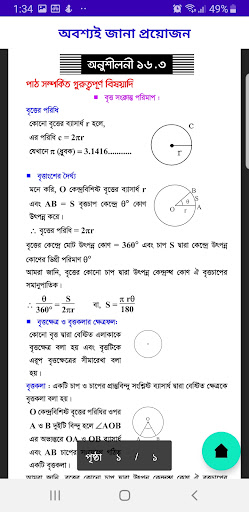 1:34
49%
অবশ্যই জানা প্রয়োজন
অনুশীলনী ১৬.৩
পাঠ সম্পর্কিত গুরুত্বপূর্ণ বিষয়াদি
■ বৃত্ত সংক্রান্ত পরিমাপ :
বৃত্তের পরিধি
কোনো বৃত্তের ব্যাসার্ধ r হলে,
এর পরিধি c = 2πr
যেখানে π (ধ্রুবক) = 3.1416...........
C
r
■ বৃত্তাংশের দৈর্ঘ্য
মনে করি, O কেন্দ্রবিশিষ্ট বৃত্তের ব্যাসার্ধ r
এবং AB = S বৃত্তচাপ কেন্দ্রে θ° কোণ
উৎপন্ন করে।
∴ বৃত্তের পরিধি = 2πr
B
S
O
θ
A
r
বৃত্তের কেন্দ্রে মোট উৎপন্ন কোণ = 360° এবং চাপ S দ্বারা কেন্দ্রে উৎপন্ন
কোণের ডিগ্রী পরিমাণ θ°
আমরা জানি, বৃত্তের কোনো চাপ দ্বারা উৎপন্ন কেন্দ্রস্থ কোণ ঐ বৃত্তচাপের
সমানুপাতিক।
∴ θ/360° = S/2πr বা, S = πrθ/180
■ বৃত্তক্ষেত্র ও বৃত্তকলার ক্ষেত্রফল:
কোনো বৃত্ত দ্বারা বেষ্টিত এলাকাকে
বৃত্তক্ষেত্র বলা হয় এবং বৃত্তটিকে
এরূপ বৃত্তক্ষেত্রের সীমারেখা বলা
হয়।
বৃত্তকলা : একটি চাপ ও চাপের প্রান্তবিন্দু সংশ্লিষ্ট ব্যাসার্ধ দ্বারা বেষ্টিত ক্ষেত্রকে
বৃত্তকলা বলা হয়।
O কেন্দ্রবিশিষ্ট বৃত্তের পরিধির ওপর
A ও B দুইটি বিন্দু হলে ∠AOB
এর অভ্যন্তরে OA ও OB ব্যাসার্ধ
এবং AB চাপের
একটি বৃত্তকলা।
O
θ
পৃষ্ঠা ১ / ১